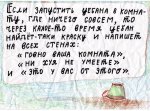 Если запустить цебана в комна-
ту, где ничего совсем, то
через какое-то время цебан
найдёт-таки краску и напишет
на всех стенах:
«Говно ваша комната»,
«Ни хуя не умеете»
и «Это у вас от этого».